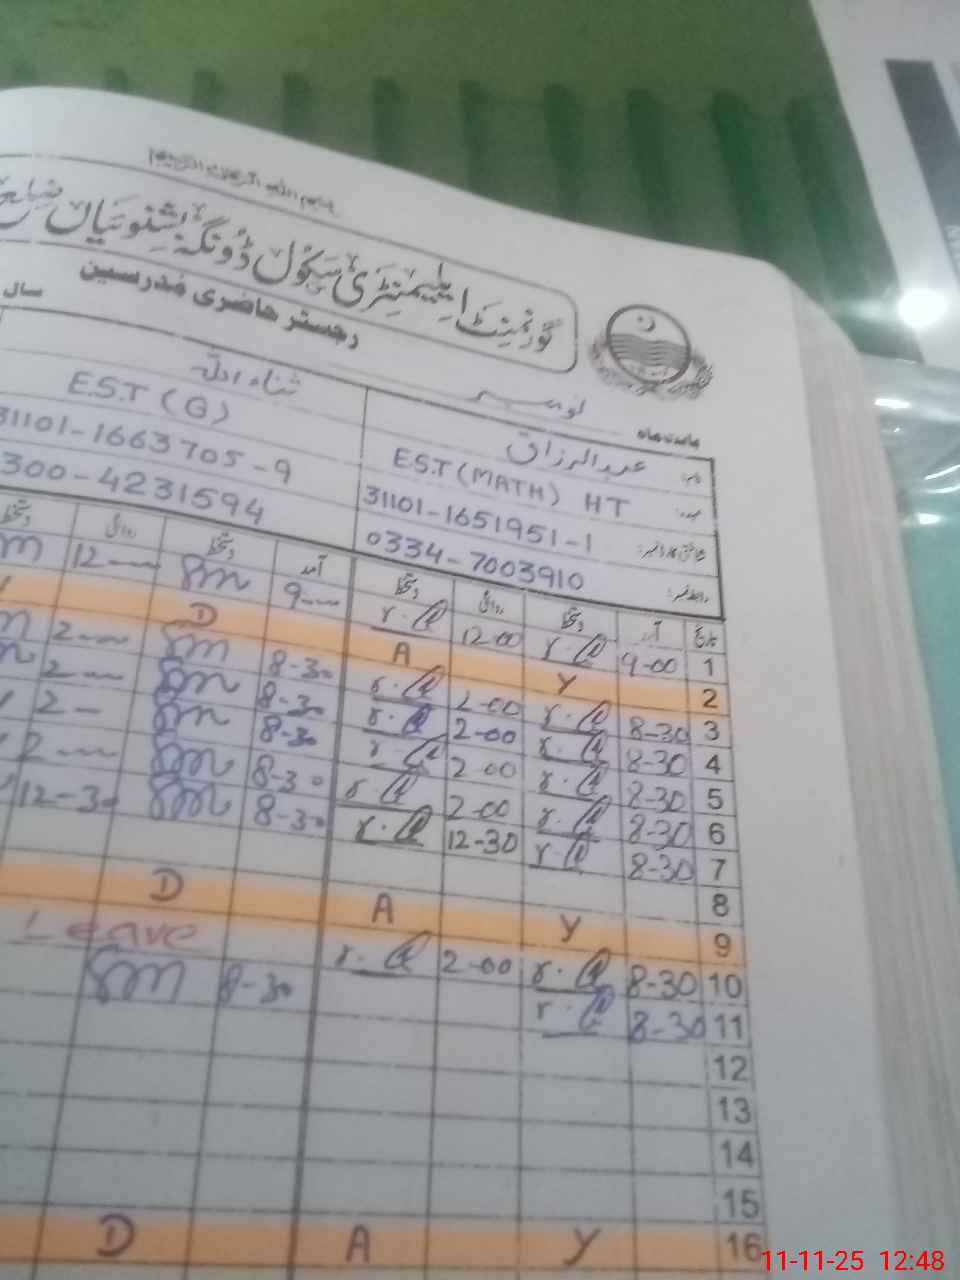 بسم اللہ الرحمن الرحیم
گورنمنٹ ایلیمنٹری سکول ڈونگہ بشنوئیاں ضلع
رجسٹر حاضری مدرسین
سال
بابت ماہ نومبر
نام: عبدالرزاق ثناء اللہ
عہدہ: EST (MATH) HT E.S.T (G)
شناختی کارڈ نمبر: 31101-1651951-1 31101-1663705-9
رابطہ نمبر: 0334-7003910 300-4231594
تاریخ آمد دستخط روانگی دستخط آمد دستخط روانگی دستخط
1 9-00 r.@ 12-00 r.@ 9 Sm 12
2 Y A D
3 8-30 r.@ 2-00 r.@ 8-30 Sm 2
4 8-30 r.@ 2-00 r.@ 8-30 Sm 2
5 8-30 r.@ 2-00 r.@ 8-30 Sm 2
6 8-30 r.@ 2-00 r.@ 8-30 Sm 2
7 8-30 r.@ 12-30 r.@ 8-30 Sm 12-30
8
9 Y A D
10 8-30 r.@ 2-00 r.@ Leave
11 8-30 r.@ 8-30 Sm
12
13
14
15
16 Y A D
11-11-25 12:48